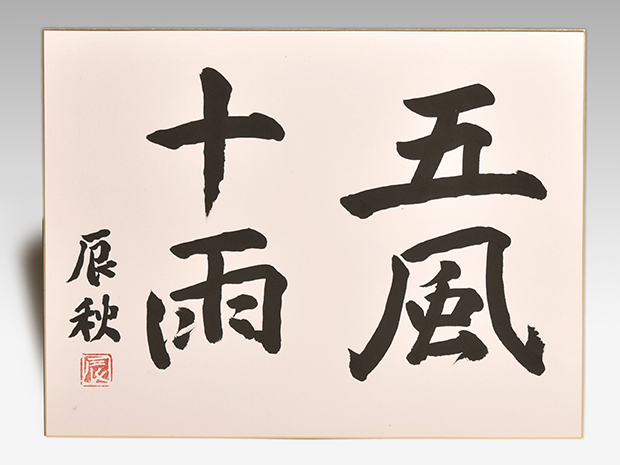 五風
十雨
辰秋
辰